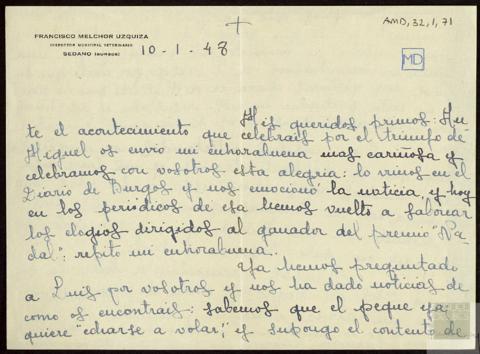 AMD, 32, 1, 71
FRANCISCO MELCHOR UZQUIZA
INSPECTOR MUNICIPAL VETERINARIO
SEDANO (BURGOS)
10-1-48
MD
Mis queridos primos: An-
te el acontecimiento que celebrais por el triunfo de
Miguel os envio mi enhorabuena mas cariñosa y
celebramos con vosotros esta alegria: lo vimos en el
Diario de Burgos y nos emocionó la noticia y hoy
en los periódicos de esa hemos vuelto a saborear
los elogios dirigidos al ganador del premio "Na-
dal"; repito mi enhorabuena.
Ya hemos preguntado
a Luis por vosotros y nos ha dado noticias de
como os encontrais: sabemos que el peque ya
quiere "echarse a volar", y supongo el contento de